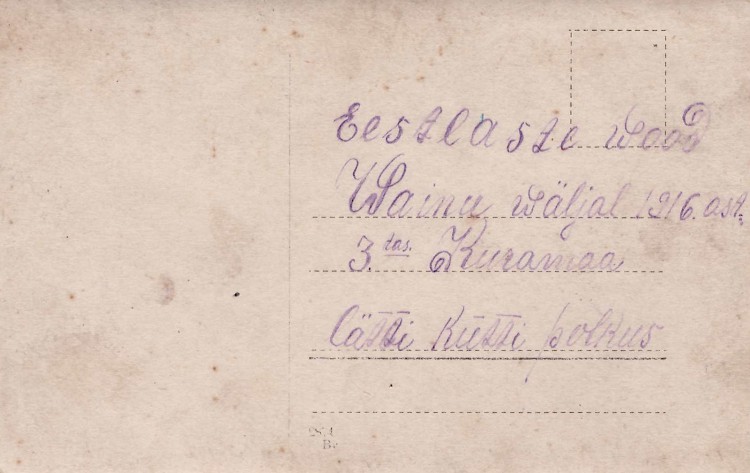 Eestlaste wood
Wainu wäljal 1916. ast.
3.das. Kuramaa
Lätti Kütti polkus